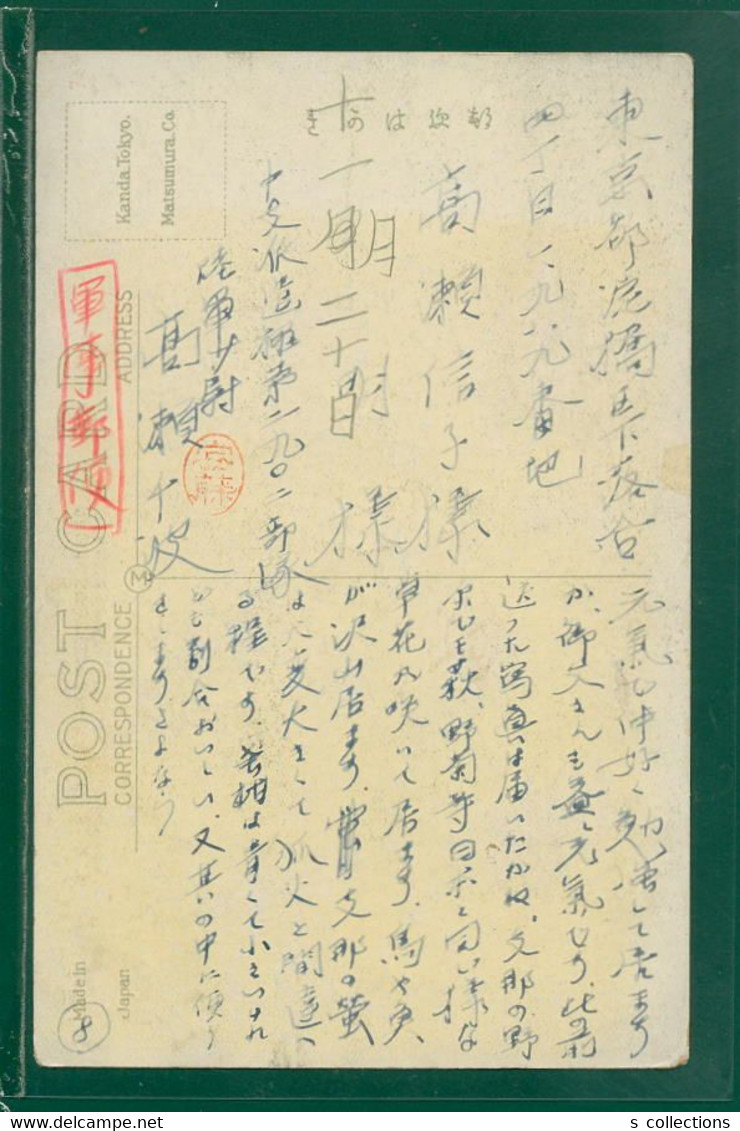 東京都淀橋区下落合
四丁目一九八九番地
高瀬信子様
様
十一月二十日
中支派遣 第二九〇二部隊
陸軍少尉
高瀬
軍事郵便
きかは便郵
元気で仲好く勉強して居ますか
御父さんも益々元気です。此の前
送つた写真は届いたかね。支那の野
にも萩、野菊等日本と同じ様な
草花が咲いて居ます。馬や
が沢山居ます。支那の螢
は大変大きくて狐火と間違へ
る程です。は青くて小さいけれ
ども割合おいしい。又其の中に便り
をします さよなら
POST CARD
CORRESPONDENCE
ADDRESS
Kanda.Tokyo.
Matsumura.Co.
Made in
Japan
8
s collections